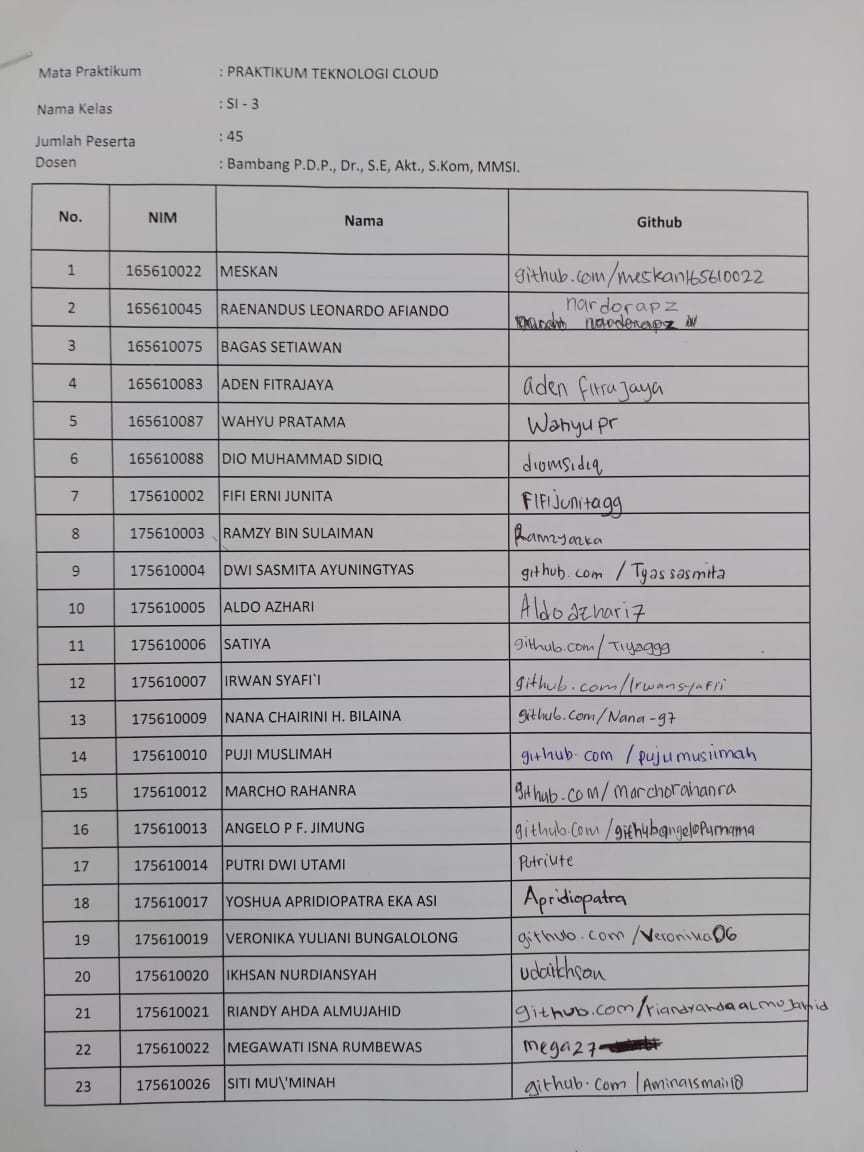 Mata Praktikum : PRAKTIKUM TEKNOLOGI CLOUD
Nama Kelas : SI - 3
Jumlah Peserta : 45
Dosen : Bambang P.D.P., Dr., S.E, Akt., S.Kom, MMSI.
No. NIM Nama Github
1 165610022 MESKAN github.com/meskan165610022
2 165610045 RAENANDUS LEONARDO AFIANDO nardorapz
3 165610075 BAGAS SETIAWAN
4 165610083 ADEN FITRAJAYA aden fitrajaya
5 165610087 WAHYU PRATAMA Wahyupr
6 165610088 DIO MUHAMMAD SIDIQ diomsidiq
7 175610002 FIFI ERNI JUNITA FIFIjunitagg
8 175610003 RAMZY BIN SULAIMAN Ramzyazka
9 175610004 DWI SASMITA AYUNINGTYAS github.com / Tyassasmita
10 175610005 ALDO AZHARI Aldoazhari7
11 175610006 SATIYA github.com/Tiyaggg
12 175610007 IRWAN SYAFI`I github.com/Irwansyafii
13 175610009 NANA CHAIRINI H. BILAINA github.com/Nana-97
14 175610010 PUJI MUSLIMAH github.com /pujumuslimah
15 175610012 MARCHO RAHANRA github.com/marchorahanra
16 175610013 ANGELO P F. JIMUNG github.com/githubangeloPurnama
17 175610014 PUTRI DWI UTAMI Putriute
18 175610017 YOSHUA APRIDIOPATRA EKA ASI Apridiopatra
19 175610019 VERONIKA YULIANI BUNGALOLONG github.com/Veronika06
20 175610020 IKHSAN NURDIANSYAH udaikhsan
21 175610021 RIANDY AHDA ALMUJAHID github.com/riandyahdaalmujahid
22 175610022 MEGAWATI ISNA RUMBEWAS mega27
23 175610026 SITI MU\'MINAH github.com/Aminaismail18